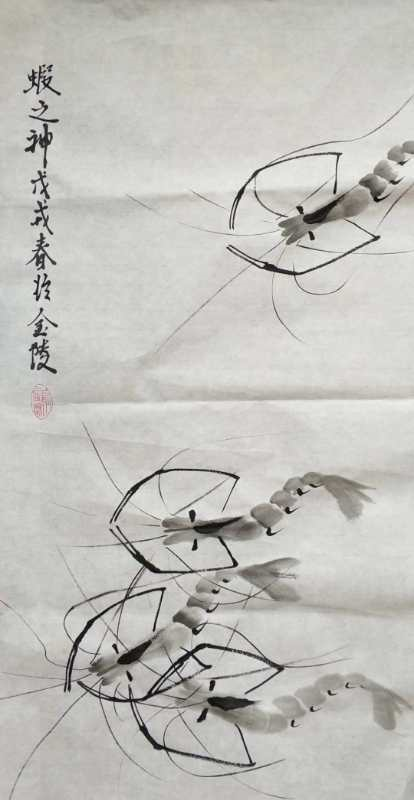 蝦之神戊戌春於金陵